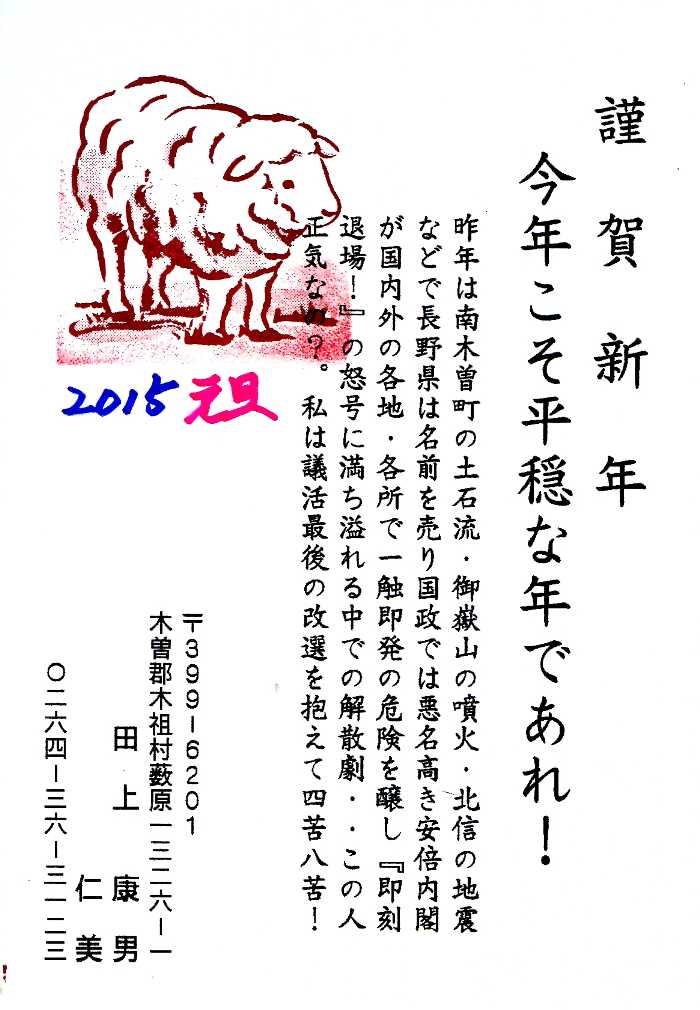 謹賀新年
今年こそ平穏な年であれ！
昨年は南木曽町の土石流・御嶽山の噴火・北信の地震
などで長野県は名前を売り国政では悪名高き安倍内閣
が国内外の各地・各所で一触即発の危険を醸し『即刻
退場！』の怒号に満ち溢れる中での解散劇・・この人
正気なの？。私は議活最後の改選を抱えて四苦八苦！
2015 元旦
〒399-6201
木曽郡木祖村薮原一三二六ー一
田上 康男
仁美
〇二六四ー三六ー三一二三